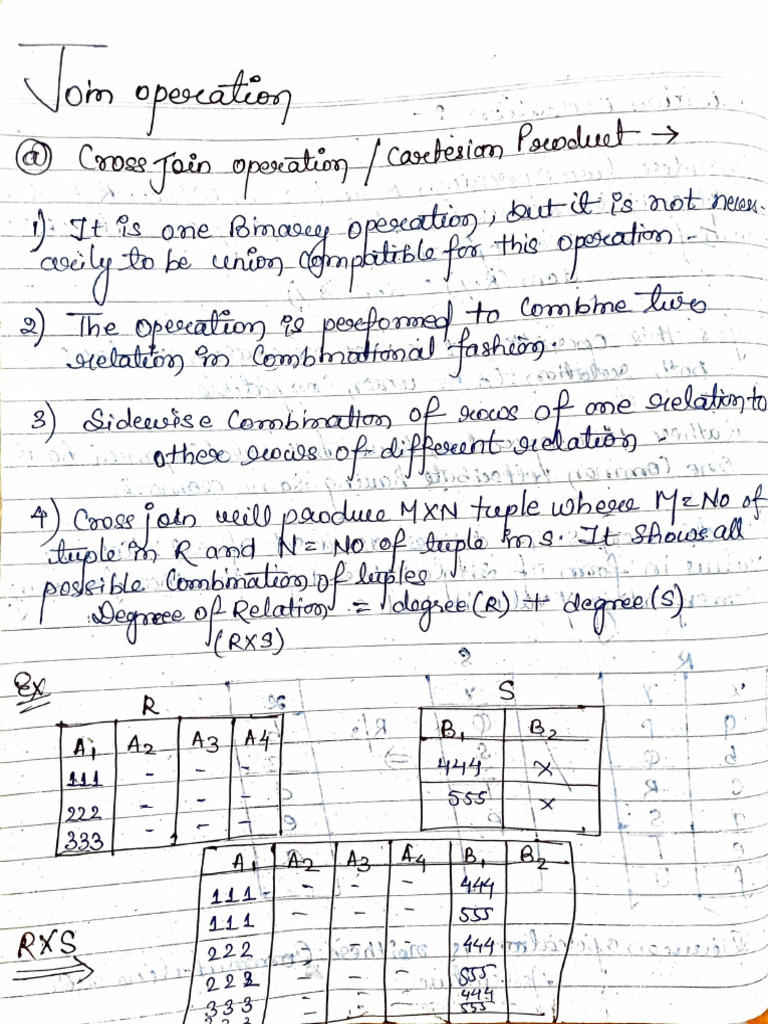 Join operation
(a) Cross Join operation / Cartesian Product →
1) It is one Binary operation, but it is not neces-
arily to be union compatible for this operation -
2) The operation is performed to combine two
relation in Combinational fashion.
3) Sidewise Combination of rows of one relation to
other rows of different relation.
4) Cross join will produce MXN tuple where M = No of
tuple in R and N = NO of tuple in S. It shows all
possible Combination of tuples
Degree of Relation = degree (R) + degree (S)
(RXS)
Ex
R
S
A1 A2 A3 A4
111 - - -
222 - - -
333 - - -
B1 B2
444 x
555 x
RXS
A1 A2 A3 A4 B1 B2
111 - - - 444
111 - - - 555
222 - - - 444
222 - - - 555
333 - - - 444
333 - - - 555